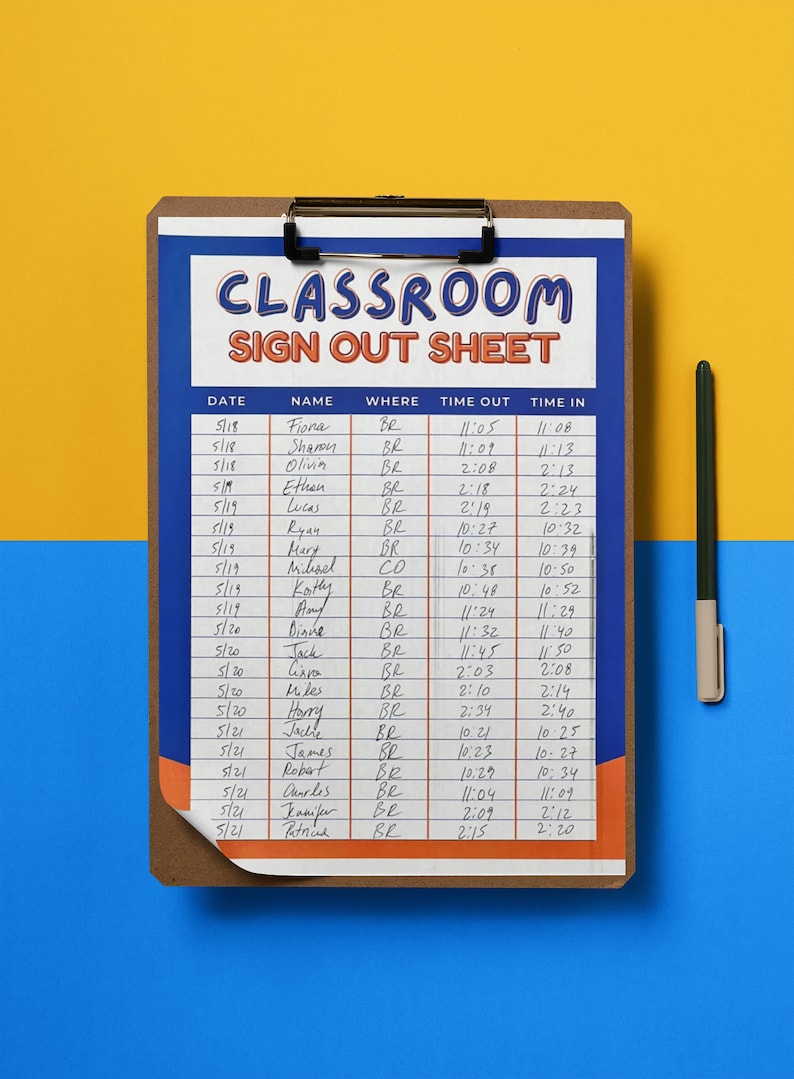 CLASSROOM
SIGN OUT SHEET
DATE NAME WHERE TIME OUT TIME IN
5/18 Fiona BR 11:05 11:08
5/18 Sharon BR 11:09 11:13
5/18 Olivia BR 2:08 2:13
5/19 Ethan BR 2:18 2:24
5/19 Lucas BR 2:19 2:23
5/19 Ryan BR 10:27 10:32
5/19 Mary BR 10:34 10:39
5/19 Michael CO 10:38 10:50
5/19 BR 10:48 10:52
5/19 Amy BR 11:24 11:29
5/20 Diane BR 11:32 11:40
5/20 Jack BR 11:45 11:50
5/20 BR 2:03 2:08
5/20 Miles BR 2:10 2:14
5/20 Harry BR 2:34 2:40
5/21 Jackie BR 10:21 10:25
5/21 James BR 10:23 10:27
5/21 Robert BR 10:29 10:34
5/21 Charles BR 11:04 11:09
5/21 Jennifer BR 2:09 2:12
5/21 Patricia BR 2:15 2:20